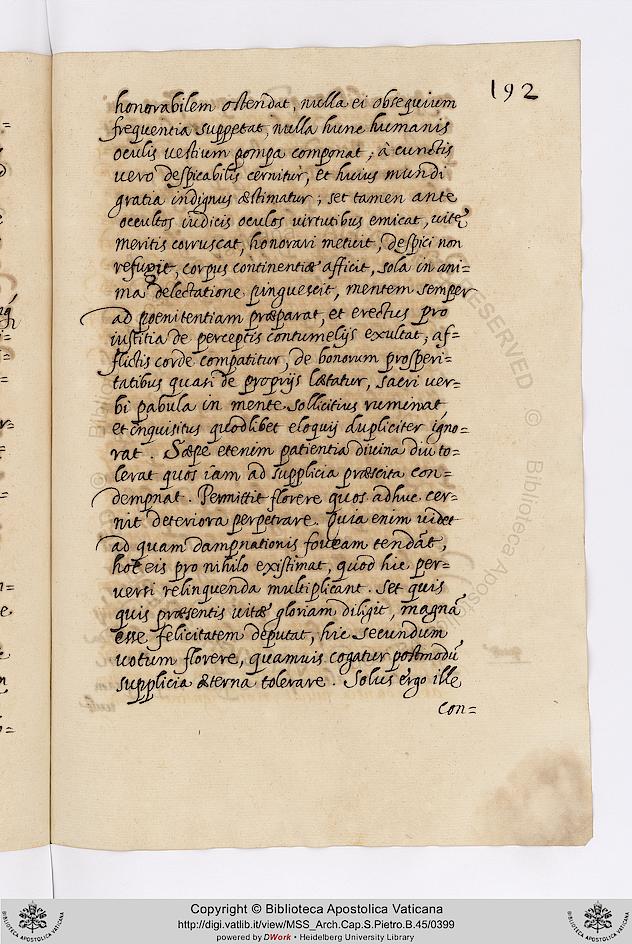 192
honorabilem ostendat, nulla ei obsequium
frequentia suppetat, nulla hunc humanis
oculis vestium pompa componat; à cunctis
vero despicabilis cernitur, et huius mundi
gratia indignus æstimatur; set tamen ante
occultos iudicis oculos virtutibus emicat, uitę
meritis corruscat, honorari metuit, despici non
refugit, corpus continentiæ afficit, sola in ani=
ma delectatione pinguescit, mentem semper
ad poenitentiam præparat, et erectus pro
iustitia de perceptis contumelijs exultat, af=
flictis corde compatitur, de bonorum prosperi=
tatibus quasi de proprijs lætatur, sacri ver=
bi pabula in mente sollicitius ruminat,
et inquisitus quodlibet eloquij dupliciter igno=
rat. Sæpe etenim patientia divina diu to=
lerat quos iam ad supplicia præscita con=
dempnat. Permittit florere quos adhuc cer=
nit deteriora perpetrare. Quia enim uidet
ad quam dampnationis foveam tendãt,
hoc eis pro nihilo existimat, quod hic per=
versi relinquenda multiplicant. Set quis
quis præsentis uitæ gloriam diligit, magnã
esse felicitatem deputat, hic secundum
uotum florere, quamuis cogatur postmodũ
supplicia æterna tolerare. Solus ergo ille
con=
RESERVED © Biblioteca Apostolica
Copyright © Biblioteca Apostolica Vaticana
http://digi.vatlib.it/view/MSS_Arch.Cap.S.Pietro.B.45/0399
powered by DWork • Heidelberg University Library